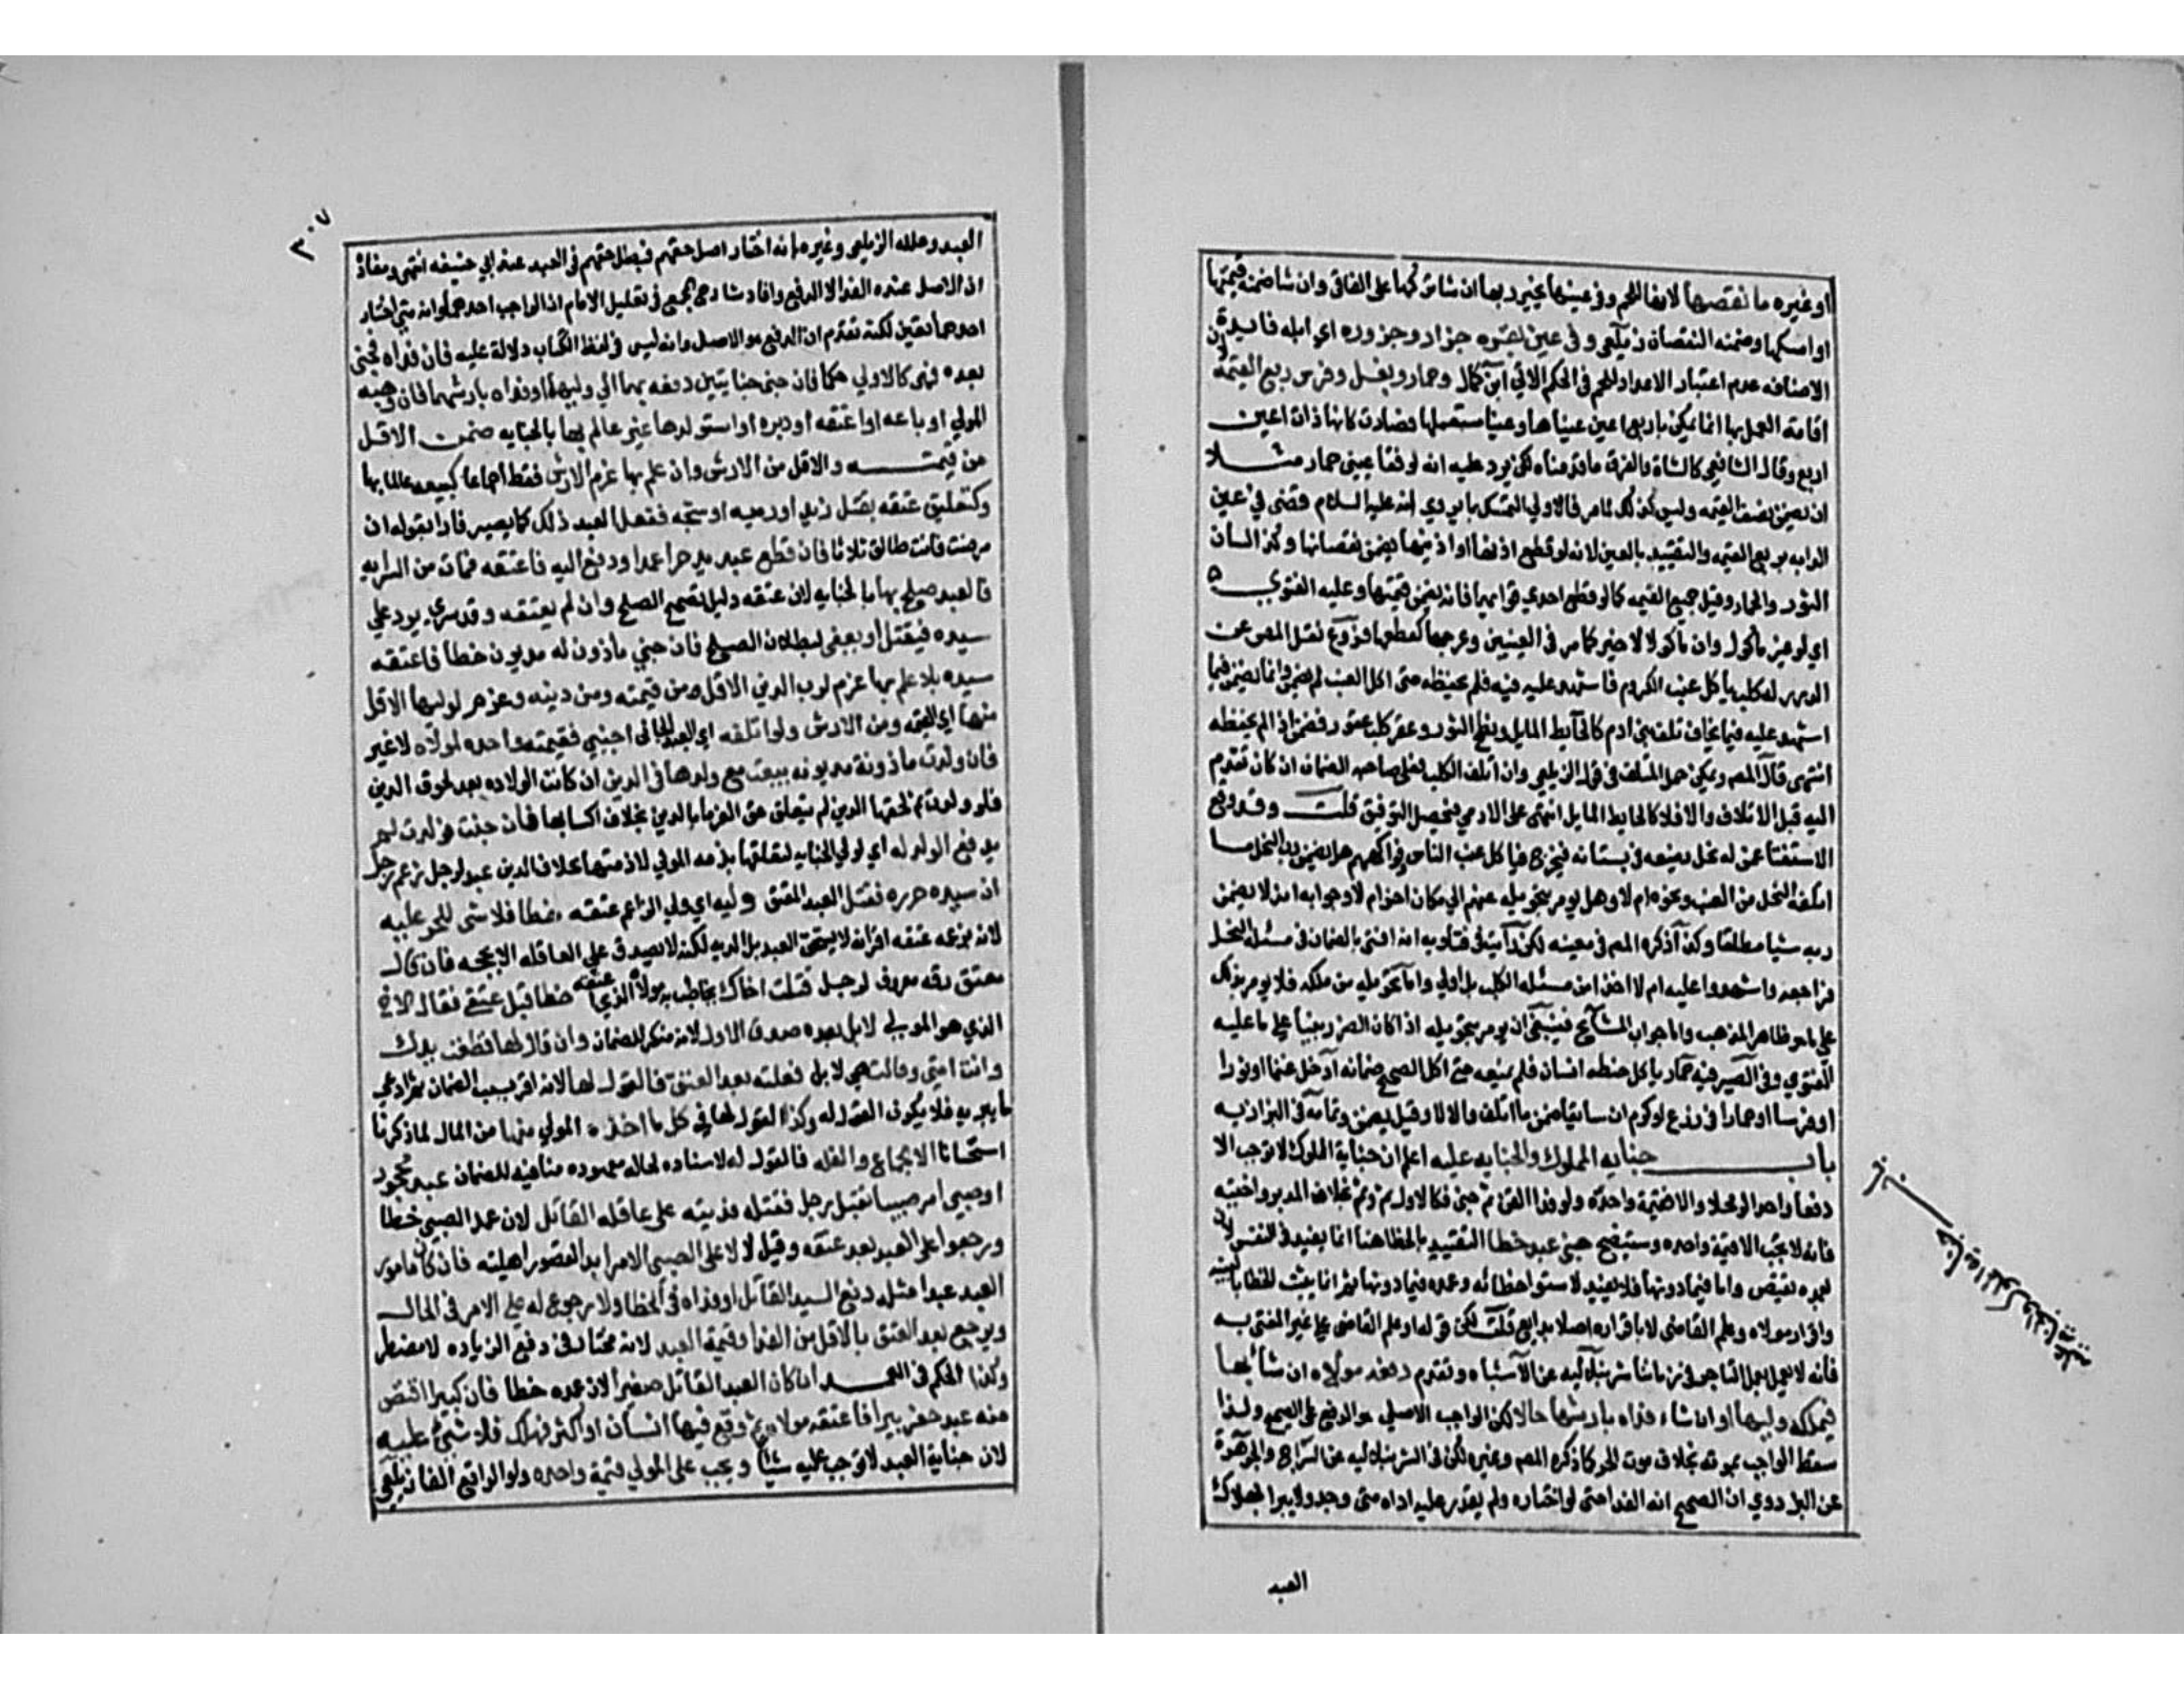 او غيره ما نقصها لانها للحم وفي عينيها يخير ربها ان شا تركها على الفاقي وان شا ضمنه قيمتها
او امسكها وضمنه النقصان زيلعي وفي عين بقره جزار وجزوره اي ابله فايدة
الاضافه عدم اعتبار الاعداد للحم في الحكم الاتي ابن كمال وحمار وبغل وفرس ربع القيمة لان
اقامة العمل بها انما يمكن باربع اعين عيناها وعينا مستعملها فصارت كانها ذات اعين
اربع وقال الشافعي كالشاة والفرق ما قدمناه لكن يرد عليه انه لو فقا عيني حمار مثلا
ان يضمن نصف القيمه وليس كذلك كما مر فالاولى التمسك بما روي انه عليه السلام قضى في عين
الدابه بربع القيمه والتقييد بالعين لانه لو قطع اذنها او ذنبها يضمن نقصانها وكذا لسان
الثور والحمار وقيل جميع القيمه كما لو قطع احدى قوايمها فانه يضمن قيمتها وعليه الفتوى
اي لو غير ماكول وان ماكولا خير كما مر في العينين وعرجها كقطعها فروع نقل المص عن
الدرر له كلب ياكل عنب الكروم فاشهد عليه فيه فلم يحفظه حتى اكل العنب لم يضمن وانما يضمن فيما
اشهد عليه فيما يخاف تلف بني ادم كالحايط المايل ونطح الثور وعقر كلب عقور فيضمن اذا لم يحفظه
انتهى قال المص ويمكن حمل المتلف في قول الزيلعي وان اتلف الكلب فعلى صاحبه الضمان ان كان تقدم
اليه قبل الاتلاف والا فلا كالحايط المايل انتهى على الادمي فيحصل التوفيق قلت وقد وقع
الاستفتا عمن له نحل يضعه في بستانه فيخرج فياكل عنب الناس وفواكههم هل يضمن رب النحل ما
اتلفه النحل من العنب ونحوه ام لا وهل يومر بتحويله عنهم الى مكان اخر ام لا وجوابه انه لا يضمن
ربه شيا مطلقا وكذا ذكره المص في معينه لكن رايت في فتاويه انه افتى بالضمان في مسئلة النحل
فراجعه واشهدوا عليه ام لا اخذا من مسئلة الكلب بل اولى واما تحويله من ملكه فلا يومر بذلك
على ما هو ظاهر المذهب واما جواب المشايخ فينبغي ان يومر بتحويله اذا كان الضرر بينا على ما عليه
الفتوى وفي الصيرفيه حمار ياكل حنطه انسان فلم يمنعه حتى اكل الصحيح ضمانه ادخل غنما او ثورا
او فرسا او حمارا في زرع او كرم ان سايقا ضمن ما اتلف والا لا وقيل يضمن وتمامه في البزازيه
باب جنايه المملوك والجنايه عليه اعلم ان جناية المملوك لا توجب الا
دفعا واحدا لو محلا والا فقيمة واحده ولو فداه القن ثم جنى فكالاول ثم وثم بخلاف المدبر واختيه
فانه لا يجب الا قيمة واحده وسيتضح جنى عبد خطا التقييد بالخطا هنا انما يفيد في النفس لان
بعمده يقتص واما فيما دونها فلا يفيد لاستوا خطائه وعمده فيما دونها ثم انما يثبت الخطا بالبينه
واقرار مولاه وعلم القاضي لا باقراره اصلا بدايع قلت لكن قوله او علم القاضي على غير المفتى به
فانه لا يعمل بعلم القاضي في زماننا شرنبلاليه عن الاشباه وتقدم دفعه مولاه ان شا بها
فيملكه وليها او ان شاء فداه بارشها حالا لكن الواجب الاصلي هو الدفع على الصحيح ولذا
سقط الواجب بموته بخلاف موت الحر كما ذكره المص وغيره لكن في الشرنبلاليه عن السراج والجوهرة
عن البزدوي ان الصحيح انه الفدا حتى لو اختاره ولم يقدر عليه اداه متى وجد ولا يبرا بهلاك
العبد
باب جنايه المملوك والجنايه عليه
٣٠٧
العبد وعلله الزيلعي وغيره بانه اختار اصل حقهم فبطل حقهم في العبد عند ابي حنيفه انتهى ومفاده
ان الاصل عنده الفدا لا الدفع وافاد شارح المجمع في تعليل الامام ان الواجب احدهما وانه متى اختار
احدهما تعين لكنه تقدم ان الدفع هو الاصل وانه ليس في لفظ الكتاب دلالة عليه فان فداه فجنى
بعده فهي كالاولى حكما فان جنى جنايتين دفعه بهما الى وليهما او فداه بارشهما فان وهبه
المولى او باعه او اعتقه او دبره او استولدها غير عالم بها بالجنايه ضمن الاقل
من قيمته والاقل من الارش وان علم بها غرم الارش فقط اجماعا كبيعه عالما بها
وكتعليق عتقه بقتل زيد او رميه او شجه ففعل العبد ذلك كما يصير فارا بقوله ان
مرضت فانت طالق ثلاثا فان قطع عبد يد حر عمدا ودفع اليه فاعتقه فمات من السرايه
فالعبد صلح بها بالجنايه لان عتقه دليل تصحيح الصلح وان لم يعتقه وقد سرى يرد على
سيده فيقتل او يعفى لبطلان الصلح فان جنى ماذون له مديون خطا فاعتقه
سيده بلا علم بها غرم لرب الدين الاقل من قيمته ومن دينه وغرم لوليها الاقل
منها اي القيمة ومن الارش ولو اتلفه اي العبد الجاني اجنبي فقيمته واحده لمولاه لا غير
فان ولدت ماذونة مديونه بيعت مع ولدها في الدين ان كانت الولاده بعد لحوق الدين
فلو ولدت ثم لحقها الدين لم يتعلق حق الغرما بالدين بخلاف اكسابها فان جنت فولدت لم
يدفع الولد له اي لولي الجنايه لتعلقها بذمه المولى لا ذمتها بخلاف الدين عبد لرجل زعم رجل
ان سيده حرره فقتل العبد المعتق وليه اي ولي الزاعم عتقه خطا فلا شى للحر عليه
لانه بزعمه عتقه اقر انه لا يستحق العبد بل الديه لكنه لا يصدق على العاقله الا بحجه فان قال
معتق رقه معروف لرجل قتلت اخاك يخاطب به مولاه الذي عتقه خطا قبل عتقي فقال الاخ
الذي هو المولى لا بل بعده صدق الاول لانه منكر للضمان وان قال لها قطعت يدك
وانت امتي وقالت هي لا بل فعلته بعد العتق فالقول لها لانه اقر بسبب الضمان ثم ادعى
ما يبريه فلا يكون القول له وكذا القول لها في كل ما اخذه المولى منها من المال لما ذكرنا
استحسانا الا الجماع والغله فالقول له لاسناده لحاله معهوده منافيه للضمان عبد محجور
او صبي امر صبيا بقتل رجل فقتله فديته على عاقله القاتل لان عمد الصبي خطا
ورجعوا على العبد بعد عتقه وقيل لا لا على الصبي الامر ابدا لقصور اهليته فان كان مامور
العبد عبدا مثله دفع السيد القاتل او فداه في الخطا ولا رجوع له على الامر في الحال
ويرجع بعد العتق بالاقل من الفدا وقيمة العبد لانه مختار في دفع الزياده لا مضطر
وكذا الحكم في العمد ان كان العبد القاتل صغيرا لان عمده خطا فان كبيرا اقتص
منه عبد حفر بيرا فاعتقه مولاه ثم وقع فيها انسان او اكثر فهلك فلا شيء عليه
لان جناية العبد لا توجب عليه شيا ويجب على المولى قيمة واحده ولو الواقع الفا زيلعي